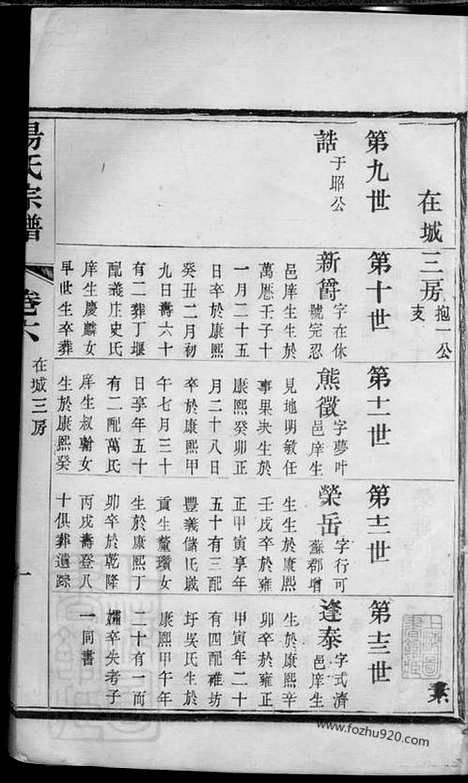 在城三房 抱一公支
第九世
誥 于耶公
第十世
新爵 字在休
號完忍
邑庠生生於
萬厯壬子十
一月二十五
日卒於康熙
癸丑二月初
九日壽六十
有二葬丁堰
配義庄史氏
庠生慶麟女
早世生卒葬
第十一世
熊徵 字夢叶
邑庠生
見地明敏任
事果决生於
康熙癸卯正
月二十八日
卒於康熙甲
午七月三十
日享年五十
有二配萬氏
庠生叔翰女
生於康熙癸
第十二世
榮岳 字行可
蘇郡增
生生於康熙
壬戌卒於雍
正甲寅享年
五十有三配
豐義儲氏歲
貢生董瓚女
生於康熙丁
卯卒於乾隆
丙戌壽登八
十俱葬遺踪
第十三世
逢泰 字式濟
邑庠生
生於康熙辛
卯卒於雍正
甲寅年二十
有四配稚坊
圩吳氏生於
康熙甲午年
二十有一而
孀卒失考子
一同書
湯氏宗譜
卷六
在城三房
一
www.fozhu920.com